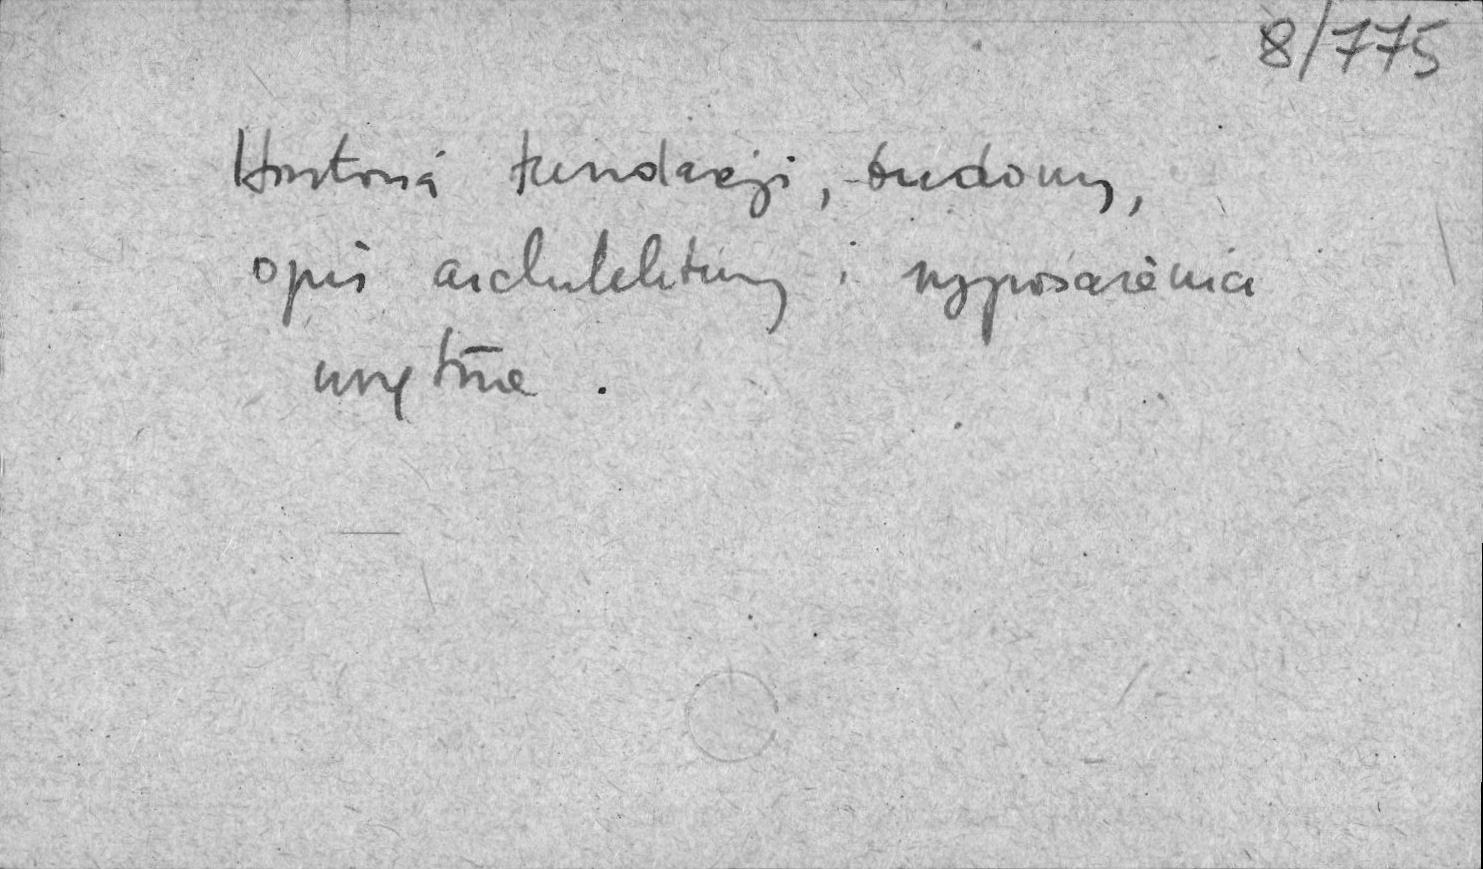 8/775
Historia fundacji, budowy,
opis architektury i wyposażenia
wnętrza.